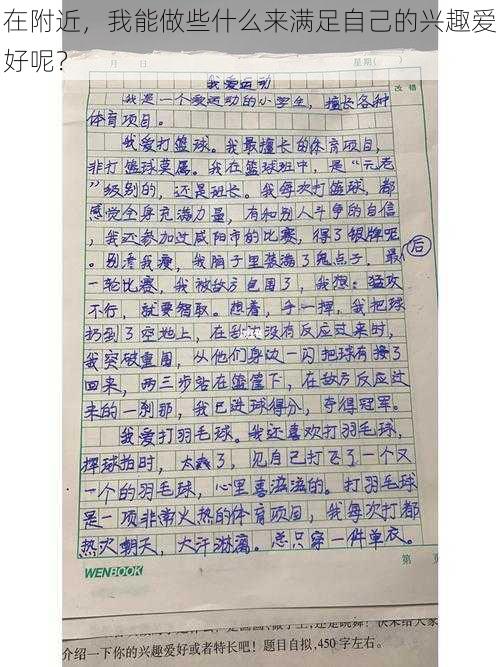 在附近，我能做些什么来满足自己的兴趣爱
好呢？
月 日 星期（ ）
我爱运动 改错
我是一个爱运动的小学生，擅长各种
体育项目。
我爱打篮球。我最擅长的体育项目，
非打篮球莫属。我在篮球班中，是“元老
”级别的，还是班长。我每次打篮球，都
感觉全身充满力量，有和别人斗争的自信
，我还参加过咸阳市的比赛，得了银牌呢
。别看我瘦，我脑子里装满了鬼点子。最后
一轮比赛，我被敌方包围了，我想：猛攻
不行，就要智取。想着，手一挥，我把球
扔到了空地上，在敌方没有反应过来时，
我突破重围，从他们身边一闪把球有接了
回来，两三步站在篮筐下，在敌方反应过
来的一刹那，我已进球得分，夺得冠军。
我爱打羽毛球。我还喜欢打羽毛球，
挥球拍时，太爽了，见自己打飞了一个又
一个的羽毛球，心里喜滋滋的。打羽毛球
是一项非常火热的体育项目，我每次打都
热火朝天，大汗淋漓。总只穿一件单衣。
WENBOOK 第 页
还是跳舞？快来给大家
介绍一下你的兴趣爱好或者特长吧！题目自拟，450字左右。